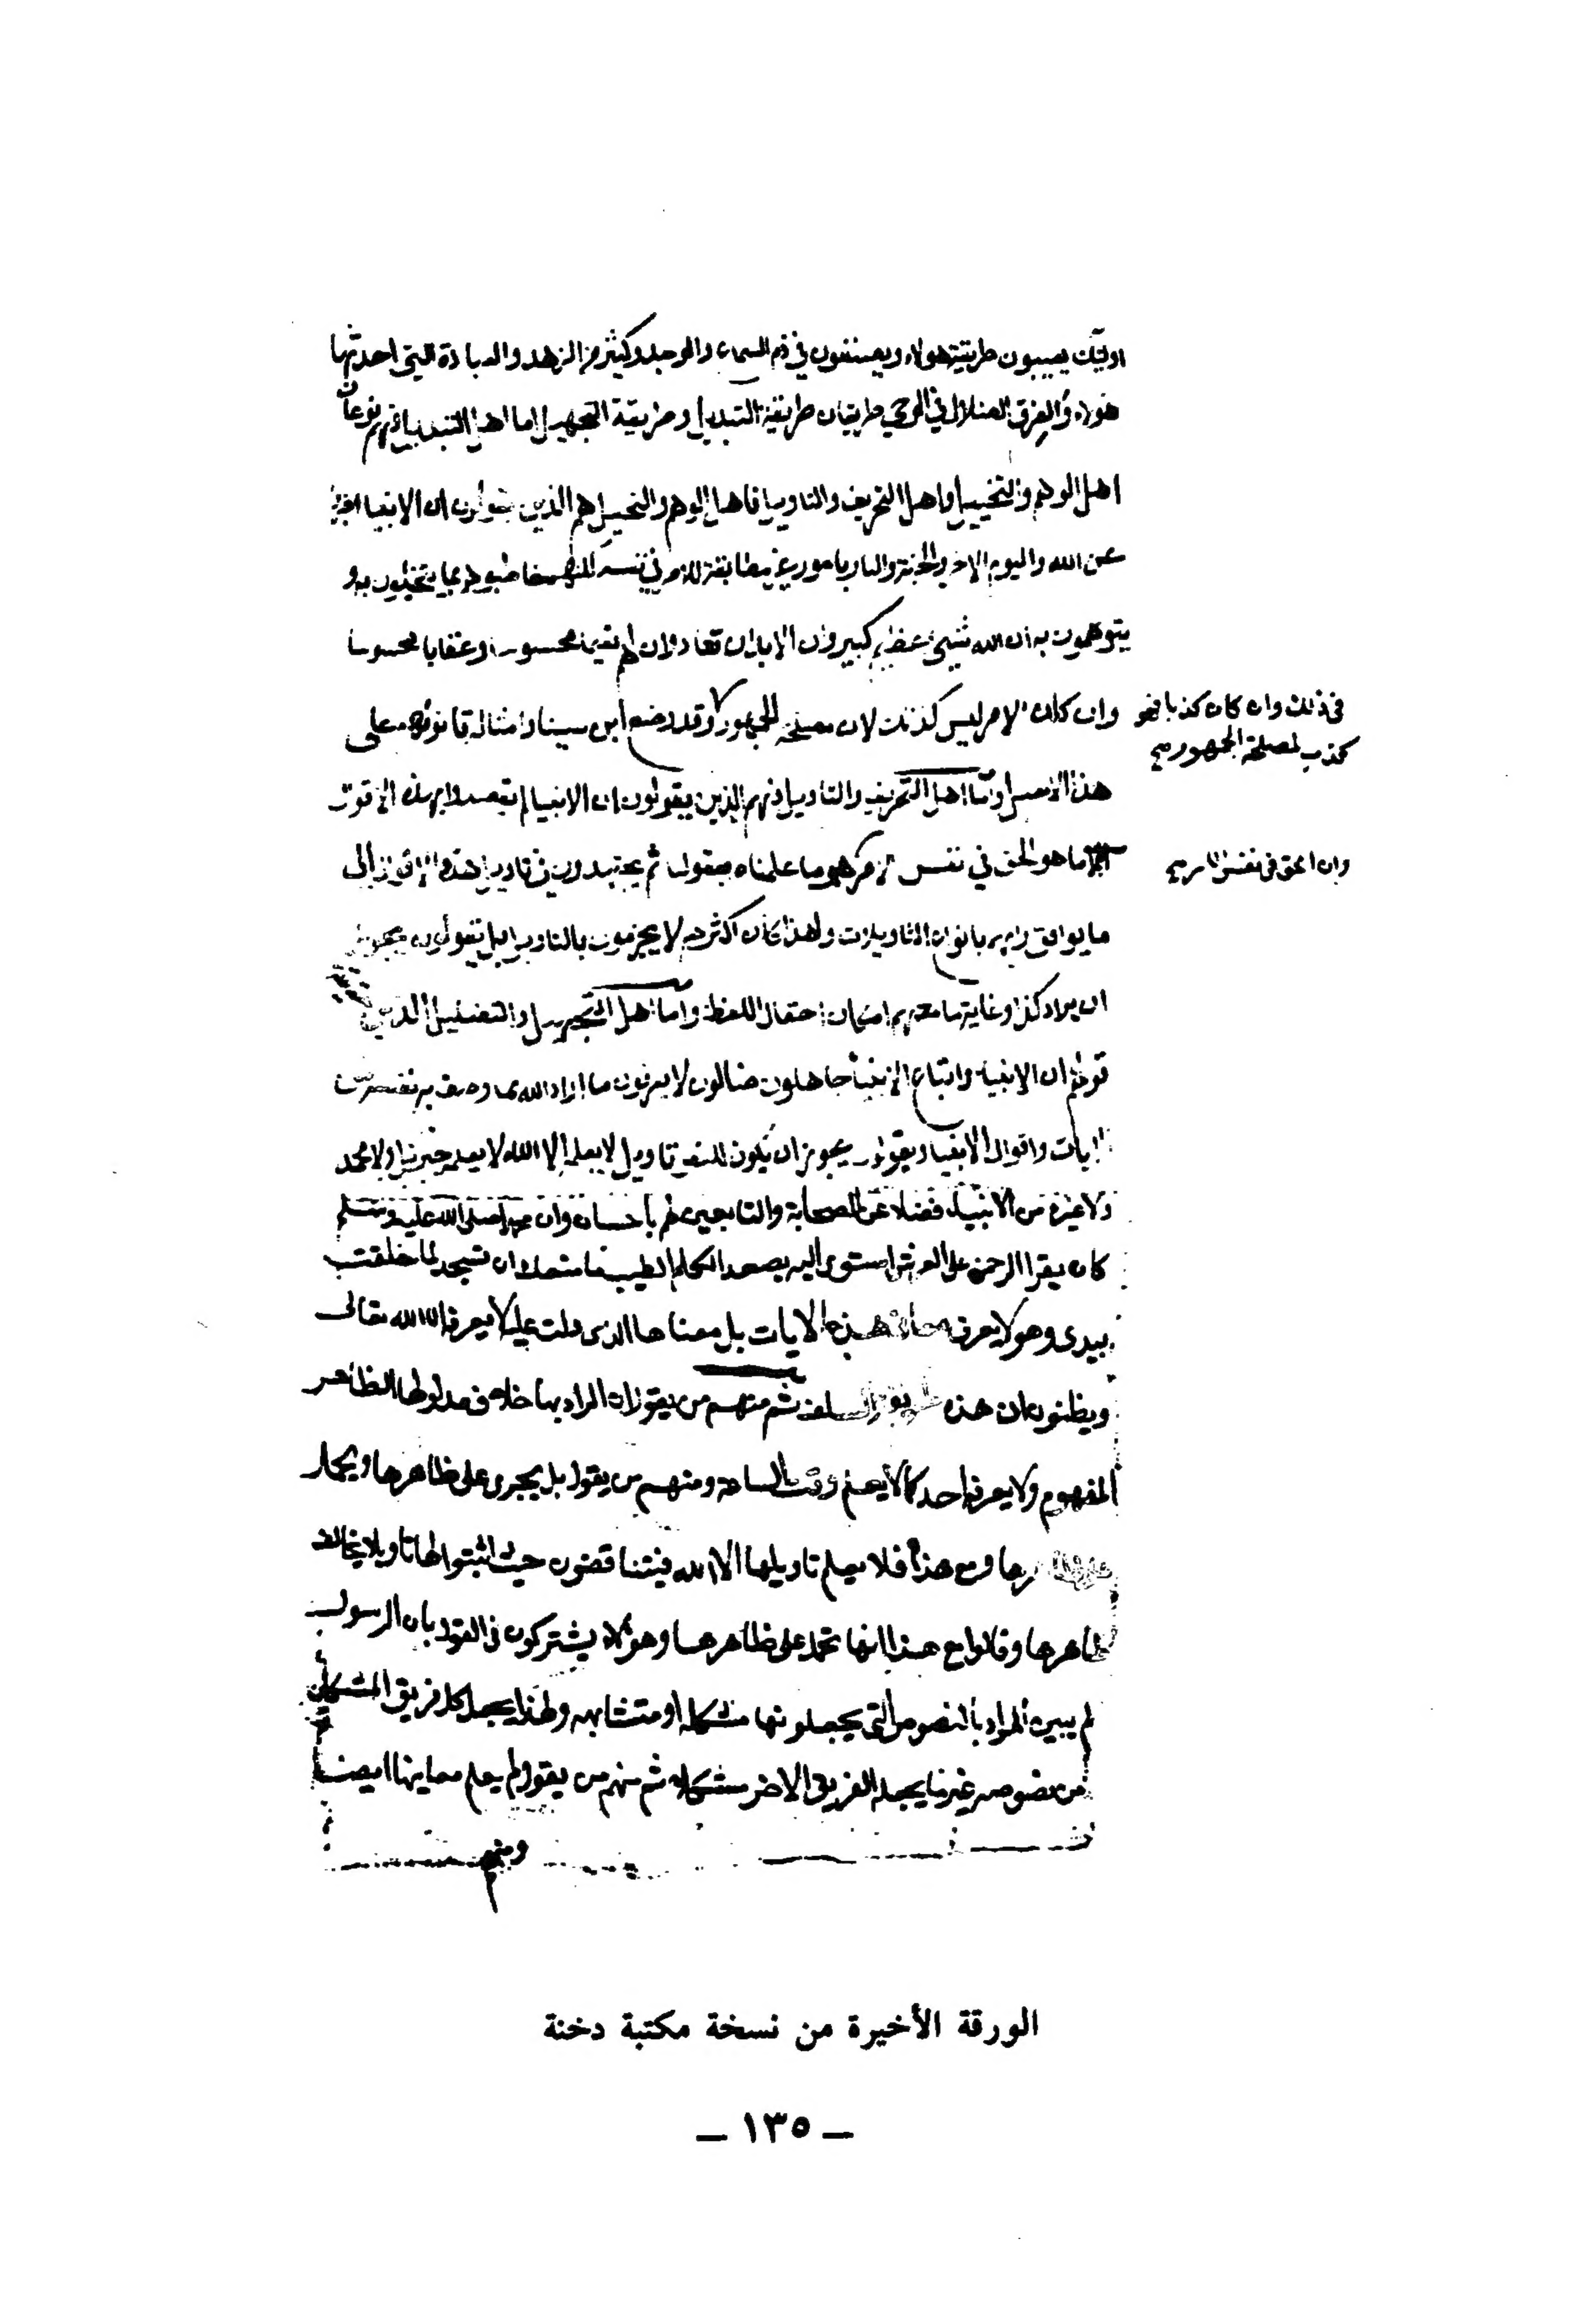 اوليك يعيبون طريقة هولاء ويصنفون في ذم السماع والوجد وكثير من الزهد والعبادة التي احدثها
هولاء والفرق الضلال في الوحي طريقان طريقة التبديل وطريقة التجهيل اما اهل التبديل فهم نوعان
اهل الوهم والتخييل واهل التحريف والتاويل فاهل الوهم والتخييل هم الذين يقولون ان الانبيا اخبروا
عن الله واليوم الاخر والجنة والنار بامور غير مطابقة للامر في نفسه لكنهم خاطبوهم بما يتخيلون به و
يتوهمون به ان الله شيئ عظيم كبير وان الابدان تعاد وان لهم نعيما محسوسا وعقابا محسوسا
وان كان الامر ليس كذلك لان مصلحة الجمهور وقد وضع ابن سينا وامثاله قانونهم على
في ذلك وان كان كذبا فهو
كذب لمصلحة الجمهور صح
هذا الاصل واما اهل التحريف والتاويل فهم الذين يقولون ان الانبيا لم يقصدوا بهذه الاقوال
ما هو الحق في نفس الامر هو ما علمناه بعقولنا ثم يجتهدون في تاويل هذه الاقوال الى
وان الحق في نفس الامر صح
ما يوافق رايهم بانواع التاويلات ولهذا كان اكثرهم لا يجزمون بالتاويل بل يقولون يجوز
ان يراد كذا وغاية ما معهم امكان احتمال اللفظ واما اهل التجهيل والتضليل الذين
قولهم ان الانبياء واتباع الانبيا جاهلون ضالون لا يعرفون ما اراد الله بما وصف به نفسه من
الايات واقوال الانبيا ويقولون يجوز ان يكون للنص تاويل لا يعلمه الا الله لا يعلمه جبريل ولا محمد
ولا غيره من الانبياء فضلا عن الصحابة والتابعين لهم باحسان وان محمدا صلى الله عليه وسلم
كان يقرا الرحمن على العرش استوى اليه يصعد الكلم الطيب ما منعك ان تسجد لما خلقت
بيدي وهو لا يعرف معاني هذه الايات بل معناها الذي دلت عليه لا يعرفه الا الله تعالى
ويظنون ان هذه طريقة السلف ثم منهم من يقول ان المراد بها خلاف مدلولها الظاهر
المفهوم ولا يعرفه احد كما لا يعلم وقت الساعة ومنهم من يقول بل يجرى على ظاهرها ويحمل
على ظاهرها ومع هذا فلا يعلم تاويلها الا الله فيتناقضون حيث اثبتوا لها تاويلا يخالف
ظاهرها وقالوا مع هذا انها تحمل على ظاهرها وهولاء يشتركون في القول بان الرسول
لم يبين المراد بالنصوص التي يجعلونها مشكلة او متشابهه ولهذا يجعل كل فريق المشكل
من نصوصه غير ما يجعله الفريق الاخر مشكلا ثم منهم من يقول لم يعلم معانيها ايضا
ومنهم
الورقة الأخيرة من نسخة مكتبة دخنة
— ١٣٥ —